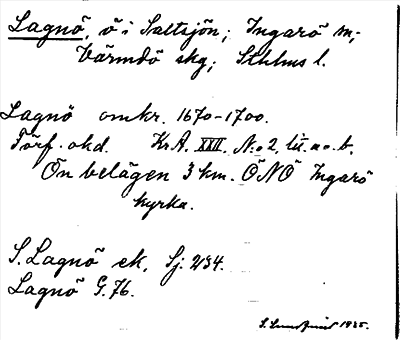 Lagnö, ö i Saltsjön; Ingarö sn,
Värmdö skg; Sthlms l.
Lagnö omkr. 1670-1700.
Förf. okd. KrA. XXII. N:o 2, lit. a o. b.
Ön belägen 3 km. ÖNÖ Ingarö
kyrka.
S. Lagnö ek. Sj: 234.
Lagnö G. 76.
S. Lundquist 1925.